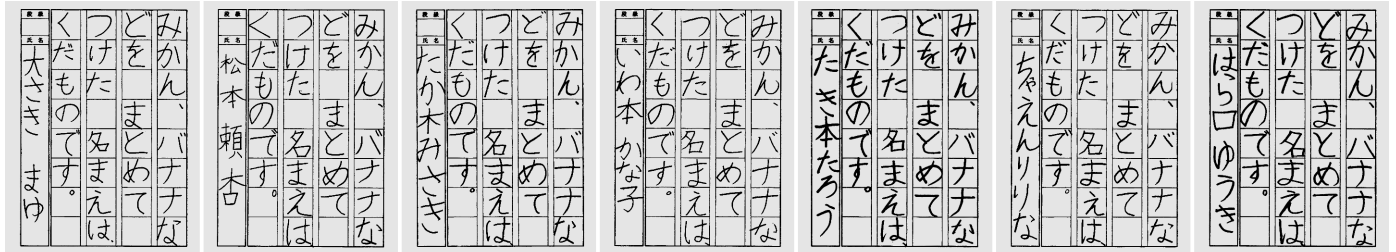 みかん、バナナな
どを　まとめて
つけた　名まえは
くだものです。
段級
氏名
大さき　まゆ
みかん、バナナな
どを　まとめて
つけた　名まえは
くだものです。
段級
氏名
松本　頼杏
みかん、バナナな
どを　まとめて
つけた　名まえは
くだものです。
段級
氏名
たか木みさき
みかん、バナナな
どを　まとめて
つけた　名まえは
くだものです。
段級
氏名
いわ本　かな子
みかん、バナナな
どを　まとめて
つけた　名まえは
くだものです。
段級
氏名
たき本たろう
みかん、バナナな
どを　まとめて
つけた　名まえは
くだものです。
段級
氏名
ちゃえんりりな
みかん、バナナな
どを　まとめて
つけた　名まえは
くだものです。
段級
氏名
はら口ゆうき